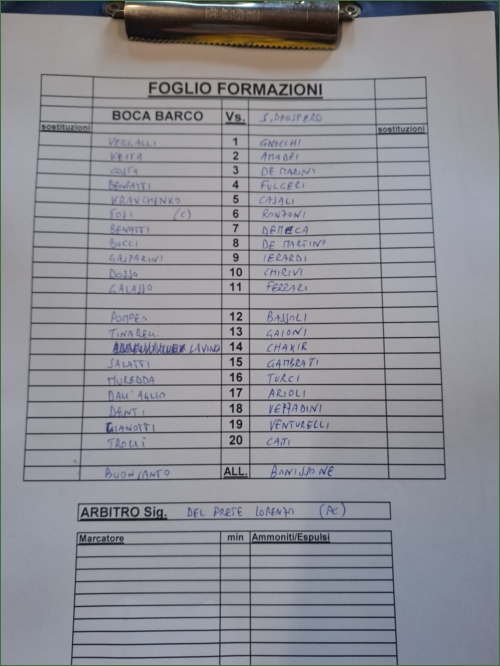 FOGLIO FORMAZIONI
BOCA BARCO Vs. S. PROSPERO
sostituzioni sostituzioni
VERCALLI 1 GNOCCHI
2 AMADEI
COSTA 3 DE MARINI
BENFATTI 4 FULGERI
KRAVCHENKO 5 CASALI
TOSI (C) 6 RONZONI
BENATTI 7 DEMECA
BUCCI 8 DE MARTINO
GASPARINI 9 IERARDI
DOSSO 10 CHIRIVI
GALASSO 11 FERRARI
POMPEO 12 BASSOLI
TINARELLI 13 GAIONI
LAVINO 14 CHAKIR
SALATTI 15 GAMBRATI
MUREDDA 16 TURCI
DALL'AGLIO 17 ARIOLI
DENTI 18 VEZZADINI
GIANOTTI 19 VENTURELLI
TROLLI 20 CATI
BUONSANTO ALL. BONISSONE
ARBITRO Sig. DEL PRETE LORENZO (PC)
Marcatore min Ammoniti/Espulsi